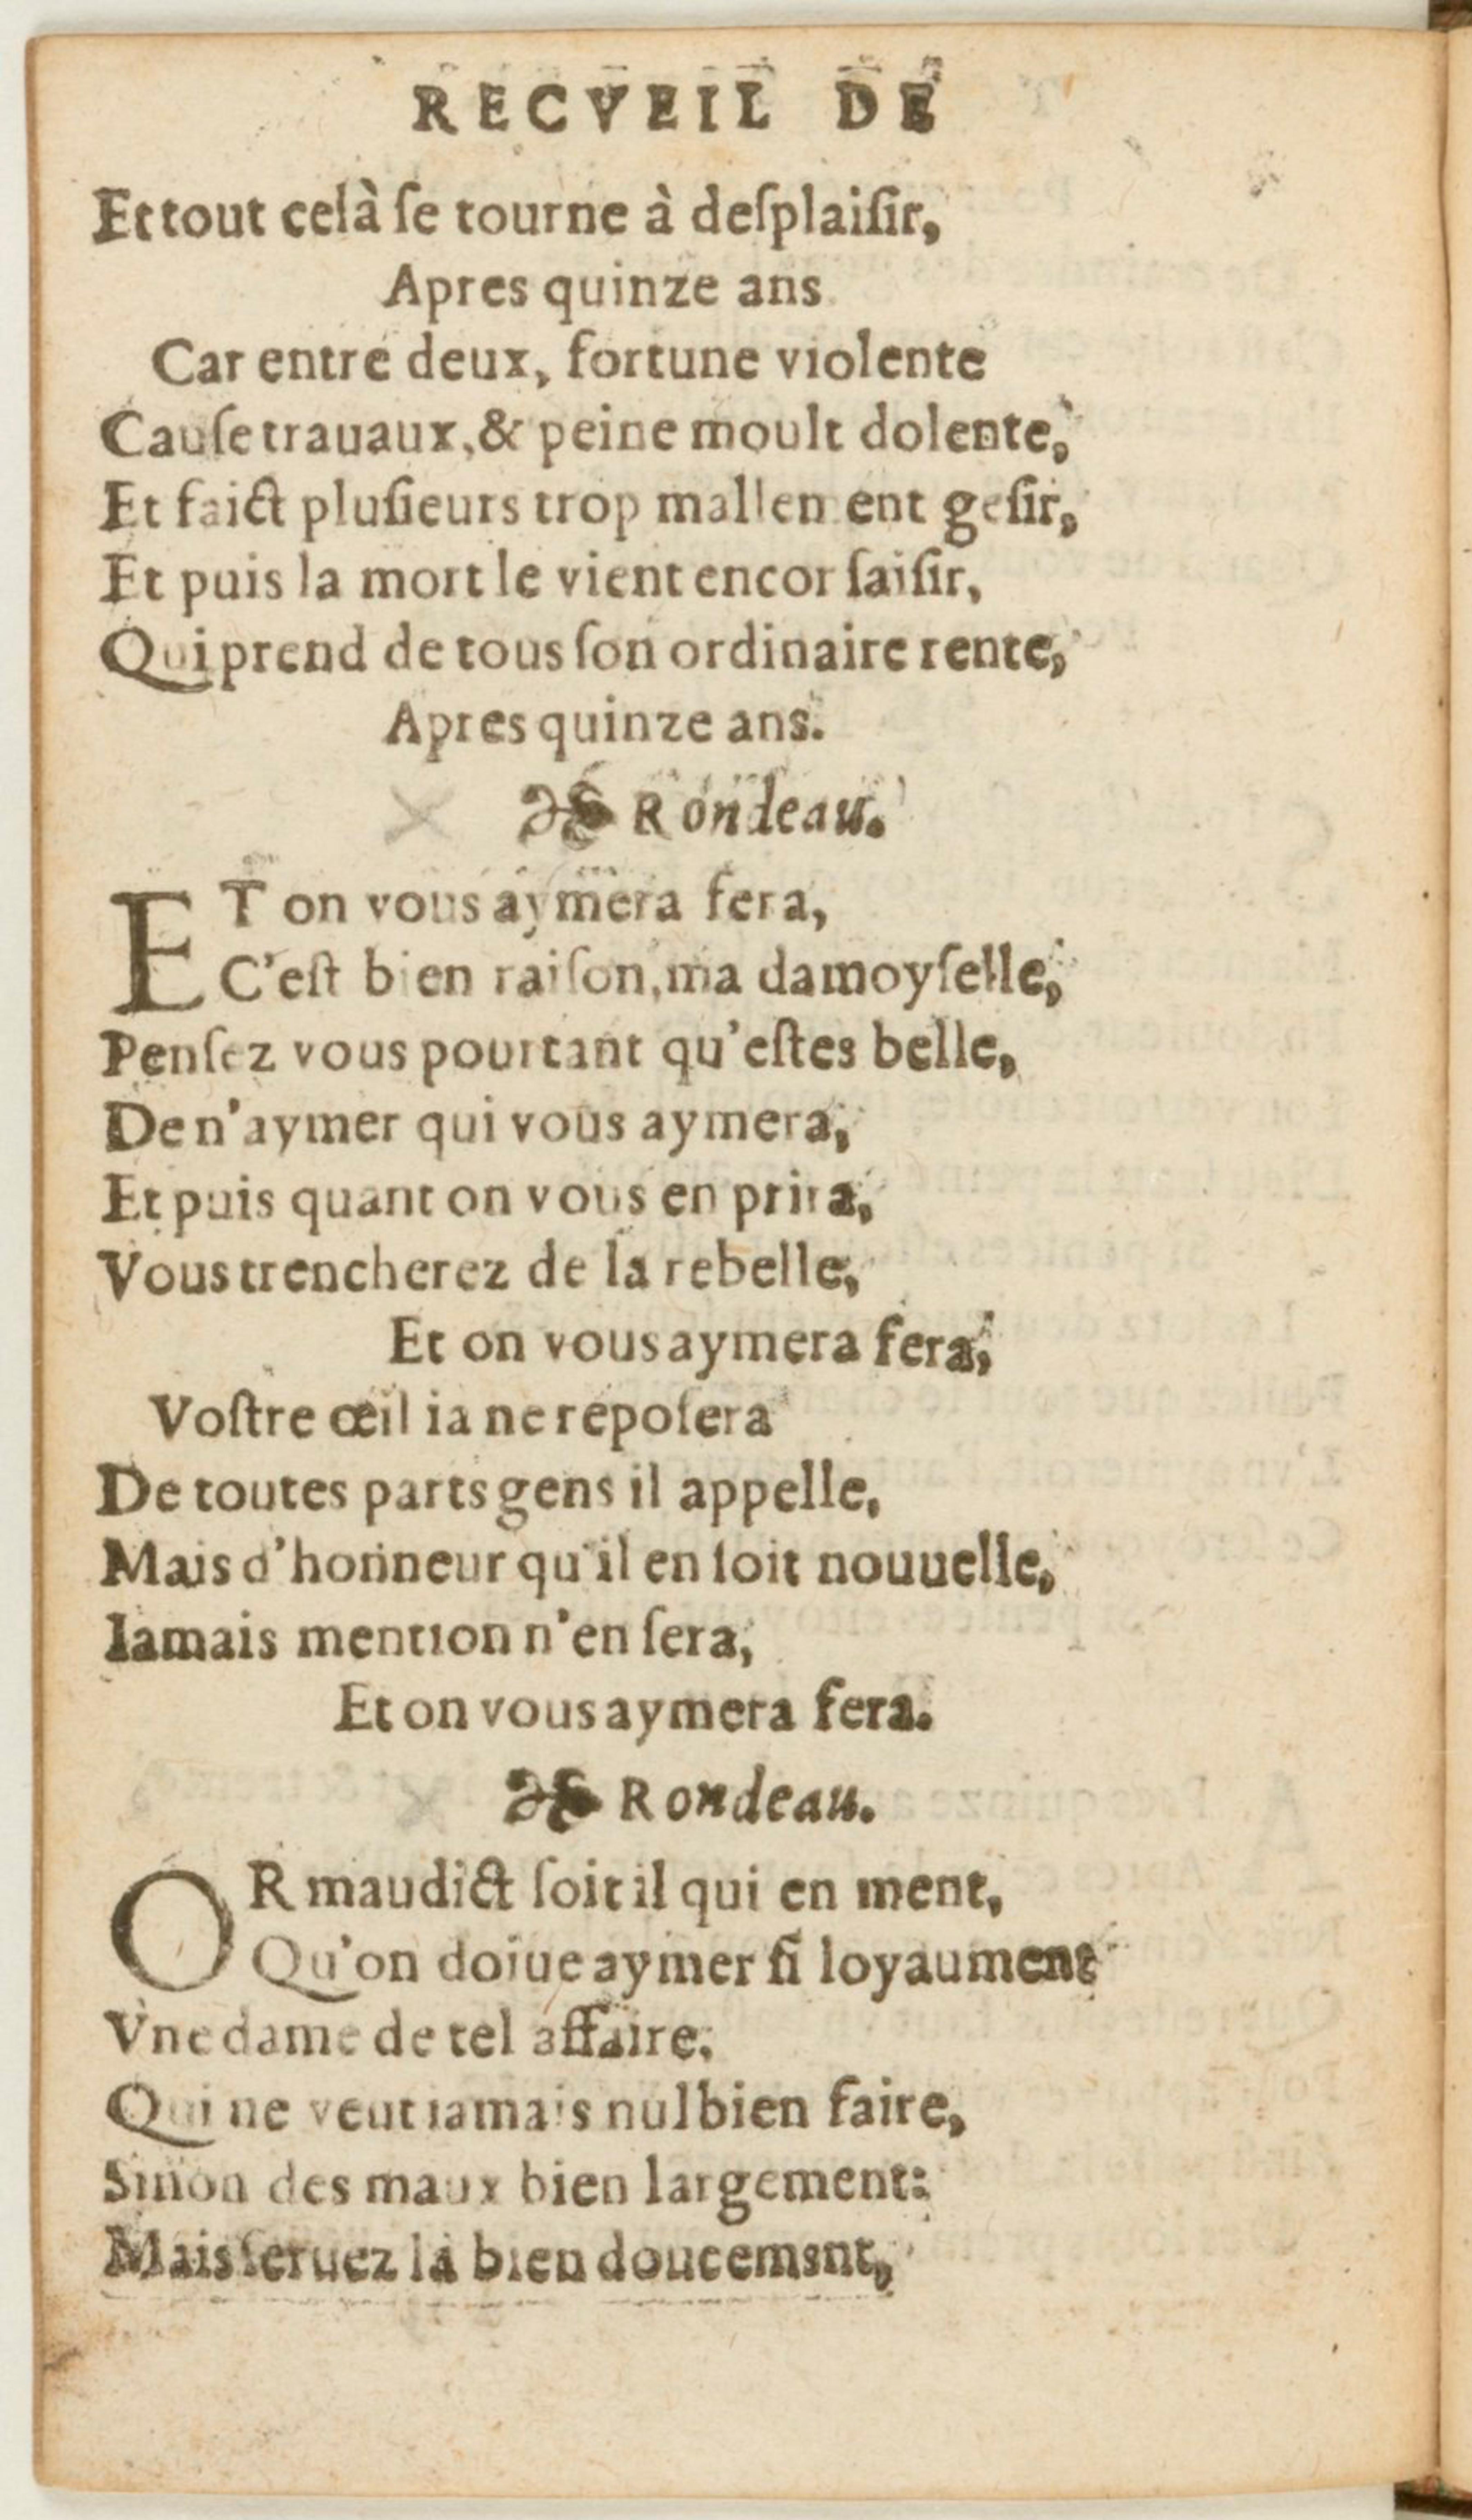 RECVEIL DE
Et tout celà ſe tourne à deſplaiſir,
Apres quinze ans
Car entre deux, fortune violente
Cauſe trauaux, & peine moult dolente,
Et faict pluſieurs trop mallement geſir,
Et puis la mort le vient encor ſaiſir,
Qui prend de tous ſon ordinaire rente,
Apres quinze ans.
Rondeau.
ET on vous aymera fera,
C'eſt bien raiſon, ma damoyſelle,
Penſez vous pourtant qu'eſtes belle,
De n'aymer qui vous aymera,
Et puis quant on vous en prira,
Vous trencherez de la rebelle,
Et on vous aymera fera,
Voſtre œil ia ne repoſera
De toutes parts gens il appelle,
Mais d'honneur qu'il en ſoit nouuelle,
Iamais mention n'en ſera,
Et on vous aymera fera.
Rondeau.
OR maudict ſoit il qui en ment,
Qu'on doiue aymer ſi loyaument
Vne dame de tel affaire,
Qui ne veut iamais nul bien faire,
Sinon des maux bien largement:
Mais ſeruez la bien doucemsnt,